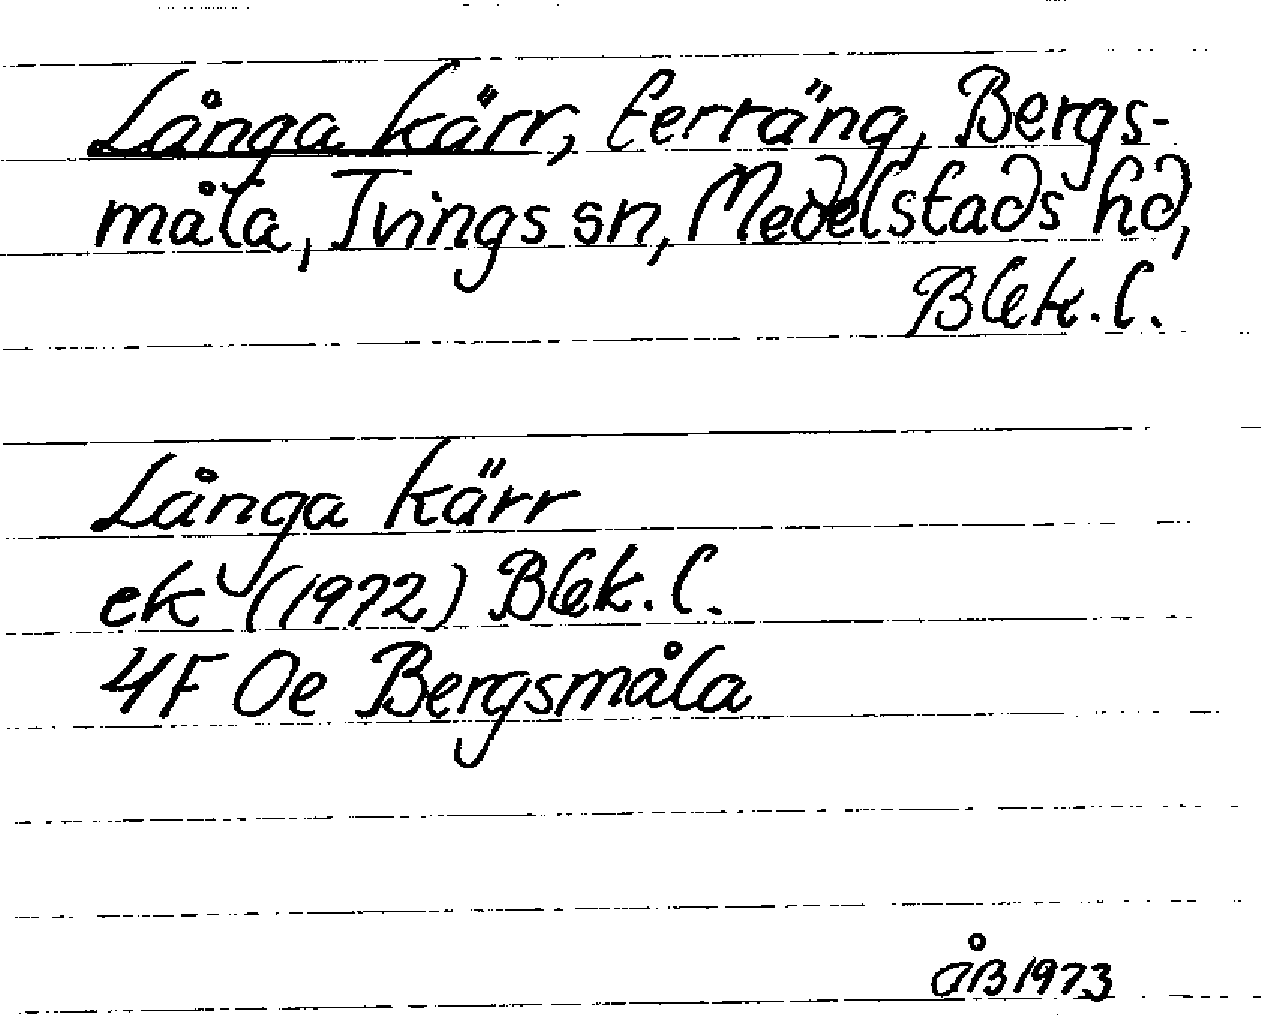 Långa kärr, terräng, Bergs-
måla, Tvings sn, Medelstads hd,
Blek. l.
Långa kärr
ek (1972) Blek. l.
4F Oe Bergsmåla
ÅB 1973